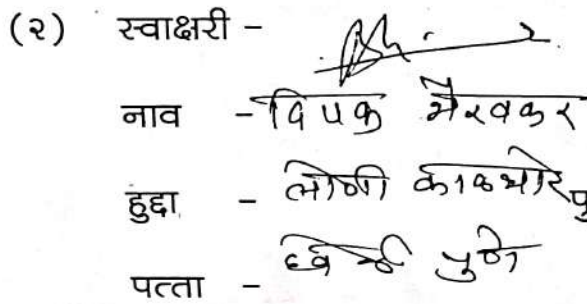 (२) स्वाक्षरी -
नाव - दिपक भैरवकर
हुद्दा - लोणी काळभोर पु
पत्ता - हवेली पुणे